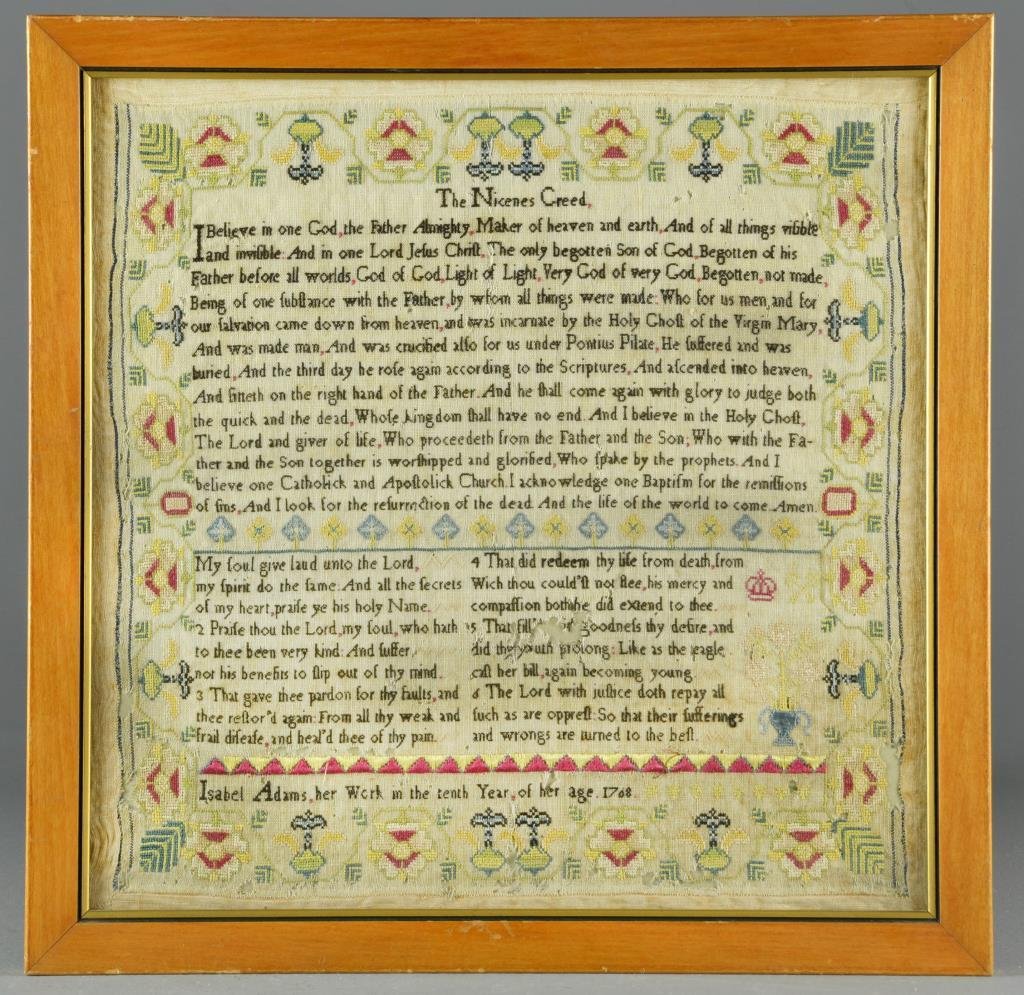 The Nicenes Creed,
I Believe in one God, the Father Almighty, Maker of heaven and earth, And of all things viſible
and inviſible: And in one Lord Jeſus Chriſt, The only begotten Son of God, Begotten of his
Father before all worlds, God of God, Light of Light, Very God of very God, Begotten, not made,
Being of one ſubſtance with the Father, by whom all things were made: Who for us men, and for
our ſalvation came down from heaven, and was incarnate by the Holy Ghoſt of the Virgin Mary,
And was made man, And was crucified alſo for us under Pontius Pilate, He ſuffered and was
buried, And the third day he roſe again according to the Scriptures, And aſcended into heaven,
And ſitteth on the right hand of the Father. And he ſhall come again with glory to judge both
the quick and the dead, Whoſe kingdom ſhall have no end. And I believe in the Holy Ghoſt,
The Lord and giver of life, Who proceedeth from the Father and the Son; Who with the Fa-
ther and the Son together is worſhipped and glorified, Who ſpake by the prophets. And I
believe one Catholick and Apoſtolick Church. I acknowledge one Baptiſm for the remiſſions
of ſins, And I look for the reſurrection of the dead. And the life of the world to come. Amen.
My ſoul give laud unto the Lord,
my ſpirit do the ſame: And all the ſecrets
of my heart, praiſe ye his holy Name.
2 Praiſe thou the Lord, my ſoul, who hath
to thee been very kind: And ſuffer
not his benefits to ſlip out of thy mind.
3 That gave thee pardon for thy faults, and
thee reſtor'd again: From all thy weak and
frail diſeaſe, and heal'd thee of thy pain.
4 That did redeem thy life from death, from
Wich thou could'ſt not flee, his mercy and
compaſſion both he did extend to thee.
5 That fill'd goodneſs thy deſire, and
did thy youth prolong: Like as the eagle
caſt her bill, again becoming young.
6 The Lord with juſtice doth repay all
ſuch as are oppreſt: So that their ſufferings
and wrongs are turned to the beſt.
Isabel Adams, her Work in the tenth Year, of her age. 1768.